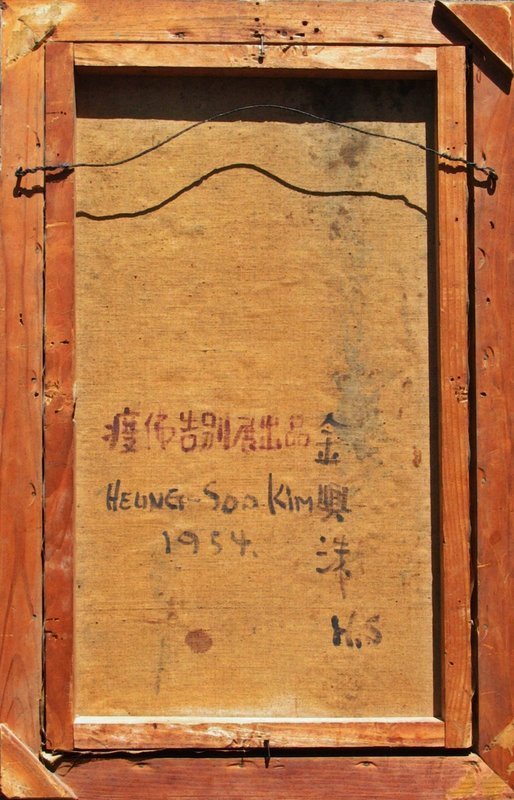 渡佛告別展出品
HEUNG-SOO KIM
1954.
金興洙
H.S